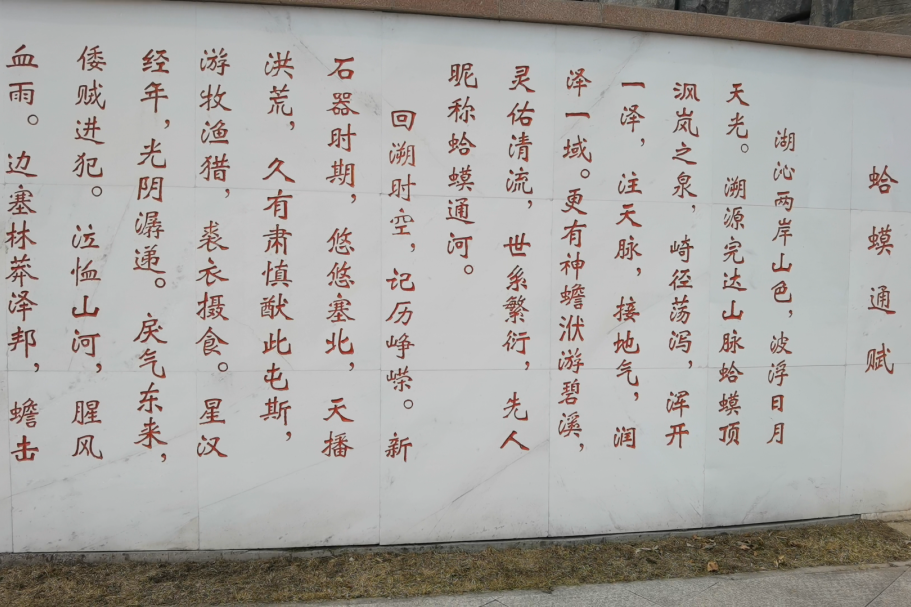 蛤蟆通赋
湖沁两岸山色，波浮日月
天光。溯源完达山脉蛤蟆顶
沨岚之泉，崎径荡泻，浑开
一泽，注天脉，接地气，润
泽一域。更有神蟾洑游碧溪，
灵佑清流，世系繁衍，先人
昵称蛤蟆通河。
回溯时空，记历峥嵘。新
石器时期，悠悠塞北，天播
洪荒，久有肃慎猷此屯斯，
游牧渔猎，裘衣摄食。星汉
经年，光阴潺递。戾气东来，
倭贼进犯。泣恤山河，腥风
血雨。边塞林莽泽邦，蟾击